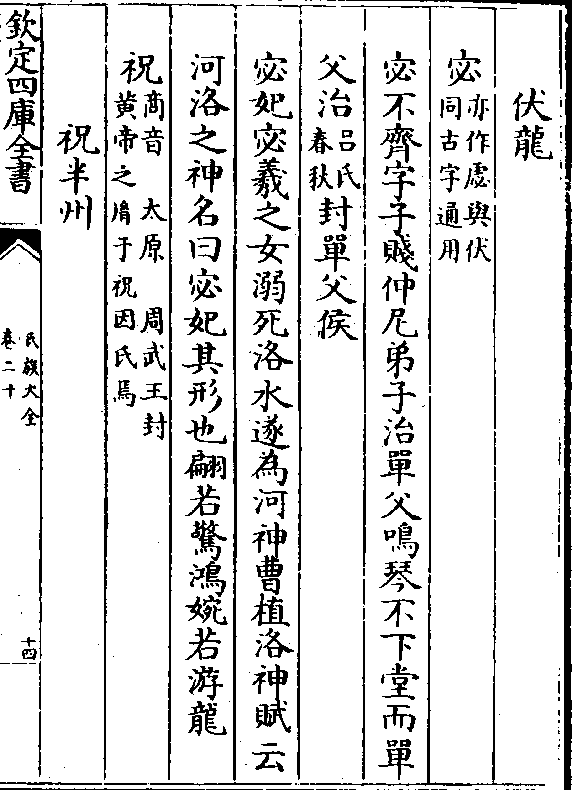 伏龍
宓亦作虙與伏同古字通用
宓不齊字子賤仲尼弟子治單父鳴琴不下堂而單
父治吕氏春秋封單父侯
宓妃宓羲之女溺死洛水遂為河神曹植洛神賦云
河洛之神名曰宓妃其形也翩若驚鴻婉若游龍
祝商音 太原 周武王封黄帝之後于祝因氏焉
祝半州
欽定四庫全書
氏族大全
卷二十
十四